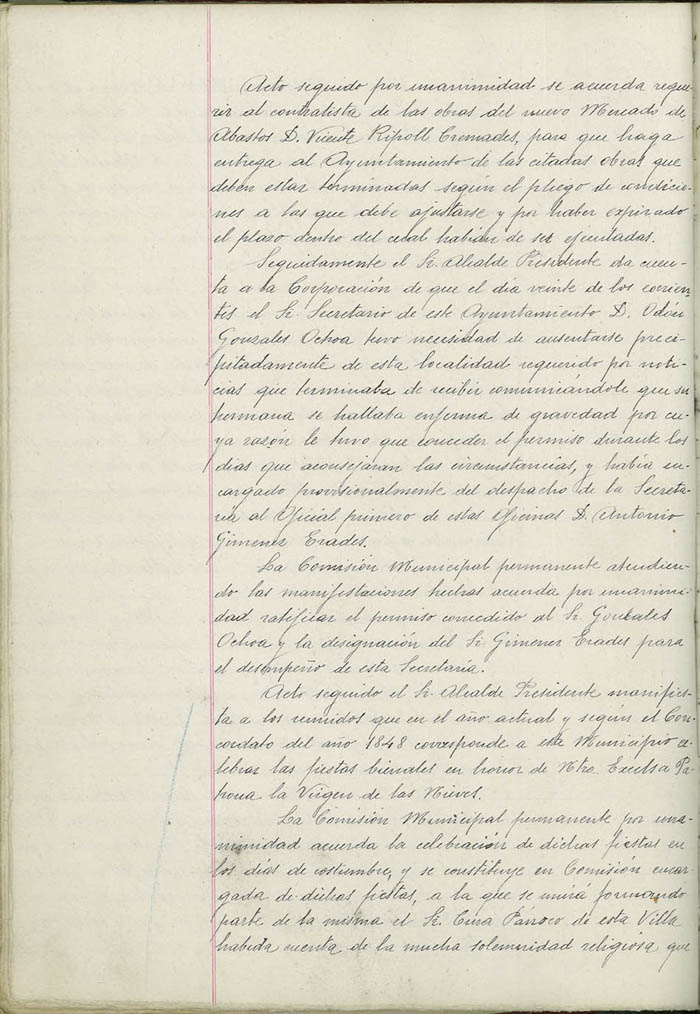 Acto seguido por unanimidad se acuerda reque-
rir al contratista de las obras del nuevo Mercado de
Abastos D. Vicente Ripoll Cremades, para que haga
entrega al Ayuntamiento de las citadas obras que
deben estar terminadas según el pliego de condicio-
nes a las que debe ajustarse y por haber expirado
el plazo dentro del cual habían de ser ejecutadas.
Seguidamente el Sr. Alcalde Presidente da cuen-
ta a la Corporación de que el día veinte de los corrien-
tes el Sr. Secretario de este Ayuntamiento D. Odón
Gonzales Ochoa tuvo necesidad de ausentarse preci-
pitadamente de esta localidad requerido por noti-
cias que terminaba de recibir comunicándole que su
hermana se hallaba enferma de gravedad por cu-
ya razón le tuvo que conceder el permiso durante los
días que aconsejaran las circunstancias, y había en-
cargado provisionalmente del despacho de la Secreta-
ría al Oficial primero de estas Oficinas D. Antonio
Gimenez Erades.
La Comisión Municipal permanente atendien-
do las manifestaciones hechas acuerda por unanimi-
dad ratificar el permiso concedido al Sr. Gonzales
Ochoa y la designación del Sr. Gimenez Erades para
el desempeño de esta Secretaría.
Acto seguido el Sr. Alcalde Presidente manifies-
ta a los reunidos que en el año actual y según el Con-
cordato del año 1848 corresponde a este Municipio ce-
lebrar las fiestas bienales en honor de Ntra. Excelsa Pa-
trona la Virgen de las Nieves.
La Comisión Municipal permanente por una-
nimidad acuerda la celebración de dichas fiestas en
los días de costumbre, y se constituye en Comisión encar-
gada de dichas fiestas, a la que se unirá formando
parte de la misma el Sr. Cura Párroco de esta Villa
habida cuenta de la mucha solemnidad religiosa que